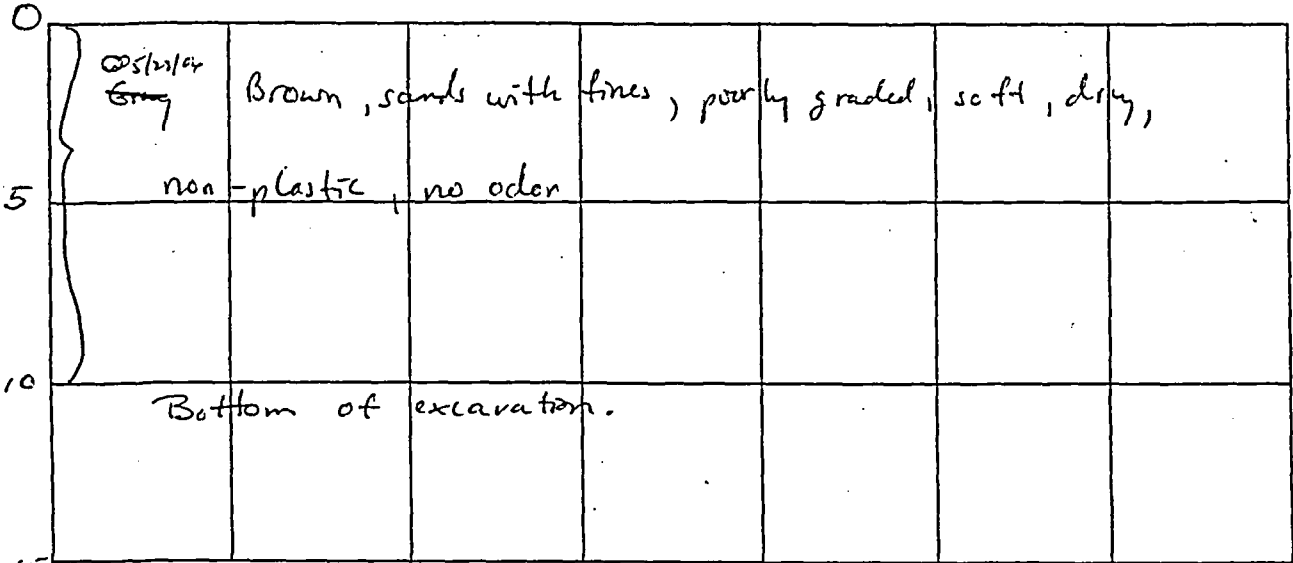 0
Brown, sands with fines, poorly graded, soft, dry,
5 non-plastic, no odor
10
Bottom of excavation.